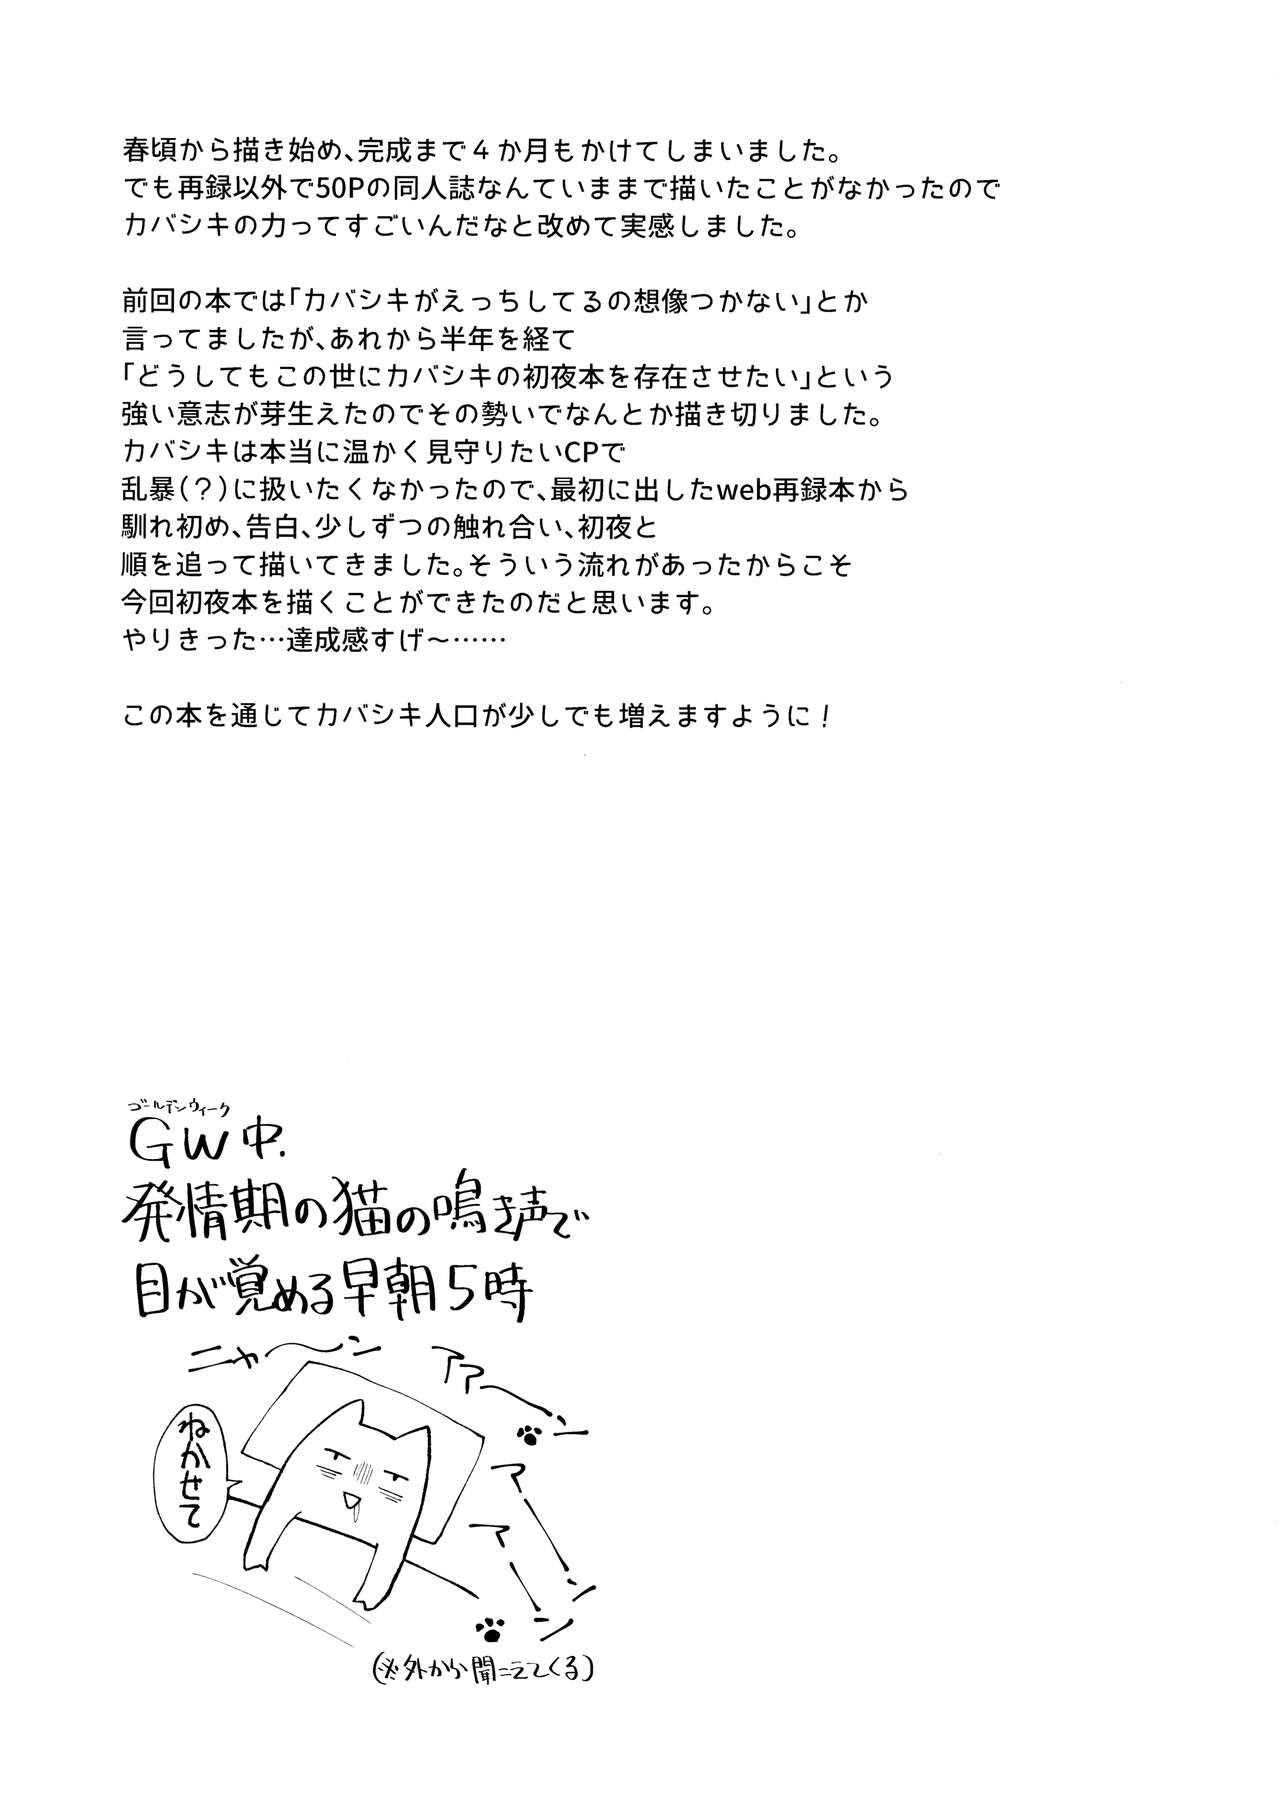 春頃から描き始め、完成まで４か月もかけてしまいました。
でも再録以外で50Pの同人誌なんていままで描いたことがなかったので
カバシキの力ってすごいんだなと改めて実感しました。
前回の本では「カバシキがえっちしてるの想像つかない」とか
言ってましたが、あれから半年を経て
「どうしてもこの世にカバシキの初夜本を存在させたい」という
強い意志が芽生えたのでその勢いでなんとか描き切りました。
カバシキは本当に温かく見守りたいCPで
乱暴（？）に扱いたくなかったので、最初に出したweb再録本から
馴れ初め、告白、少しずつの触れ合い、初夜と
順を追って描いてきました。そういう流れがあったからこそ
今回初夜本を描くことができたのだと思います。
やりきった…達成感すげ～……
この本を通じてカバシキ人口が少しでも増えますように！
ゴールデンウィーク
GW中、
発情期の猫の鳴き声で
目が覚める早朝５時
ニャ〜ン
アア〜ン
ねかせて
アーン
アーン
(※外から聞こえてくる)